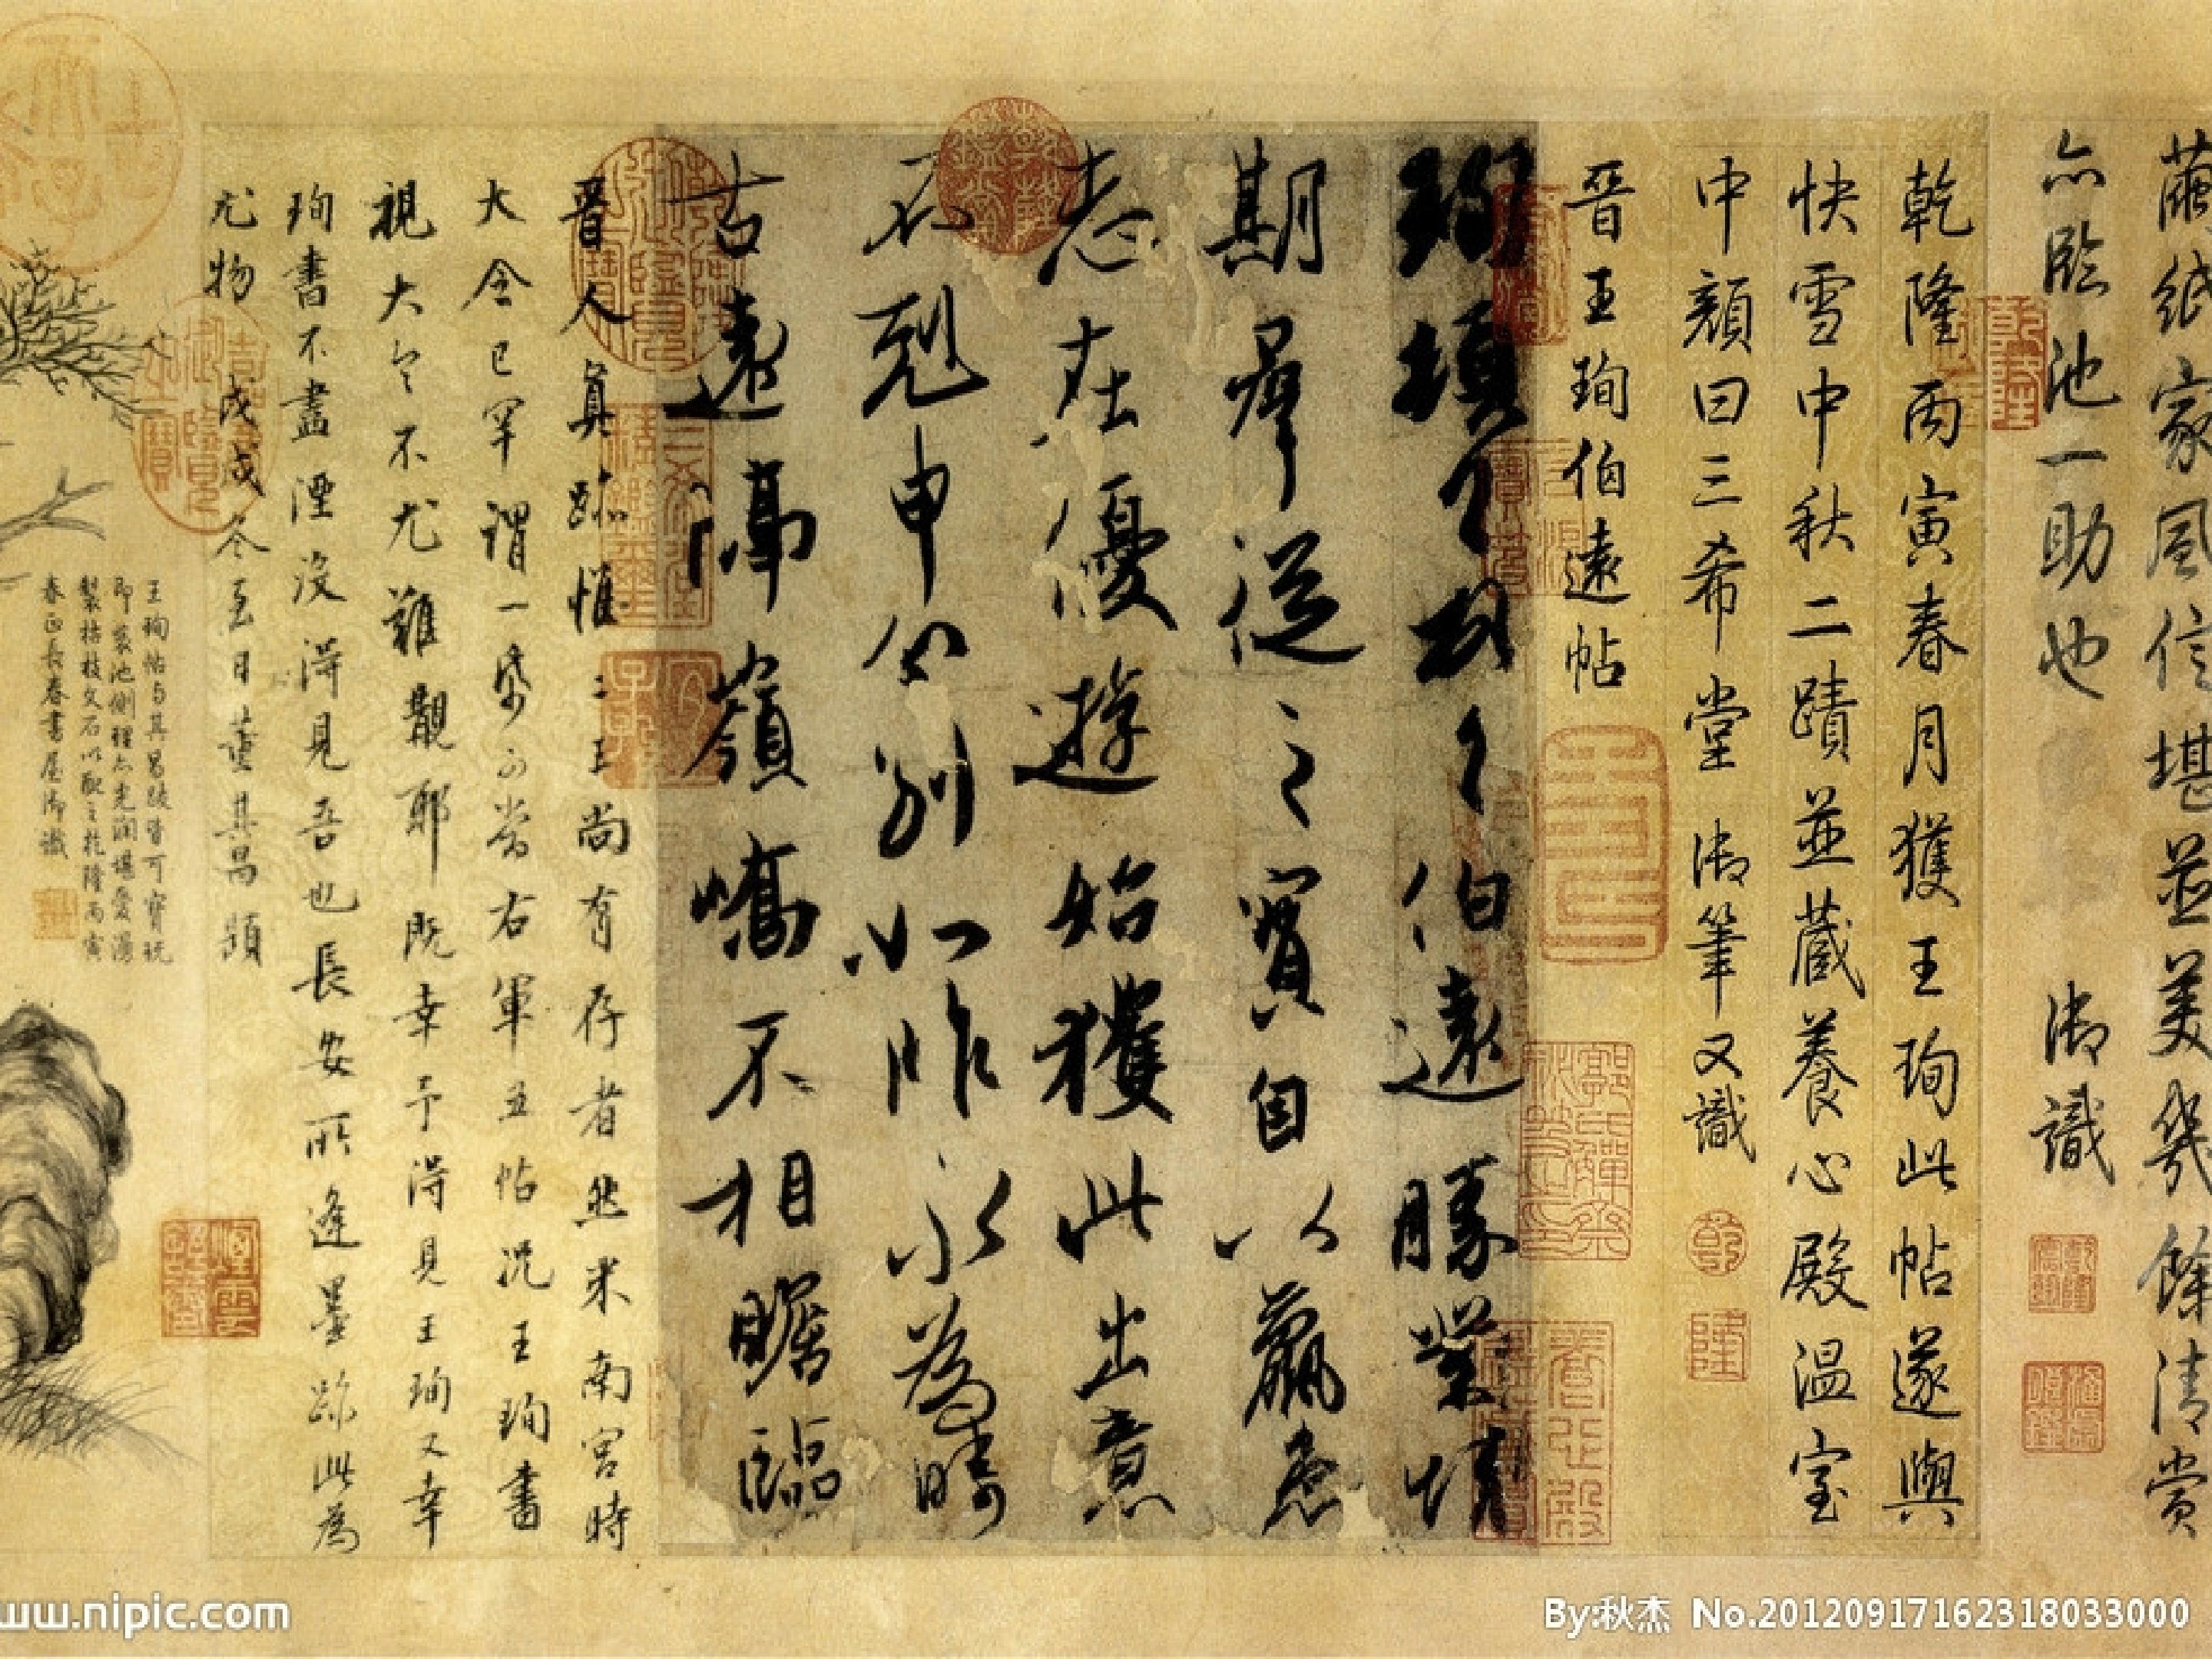 繭紙家風信堪並美幾餘清賞
亦臨池一助也 御識
乾隆丙寅春月獲王珣此帖遂與
快雪中秋二蹟並藏養心殿溫室
中顏曰三希堂御筆又識
晉王珣伯遠帖
珣頓首頓首伯遠勝業情
期群從之寶自以羸患
志在優遊始獲此出意
不剋申分別如昨永為疇
古遠隔嶺嶠不相瞻臨
晉人真跡惟二王尚有存者然米南宮時
大令已罕謂一紙可當右軍五帖況王珣書
視大令不尤難覯耶既幸予得見王珣又幸
珣書不盡湮沒得見吾也長安所逢墨跡此為
尤物戊戌冬至日董其昌題
王珣帖與其昌跋皆可寶玩
即裝池側理亦光潤堪愛漫
製枯枝文石以配之乾隆丙寅
春正長春書屋御識
www.nipic.com
By:秋杰 No.20120917162318033000